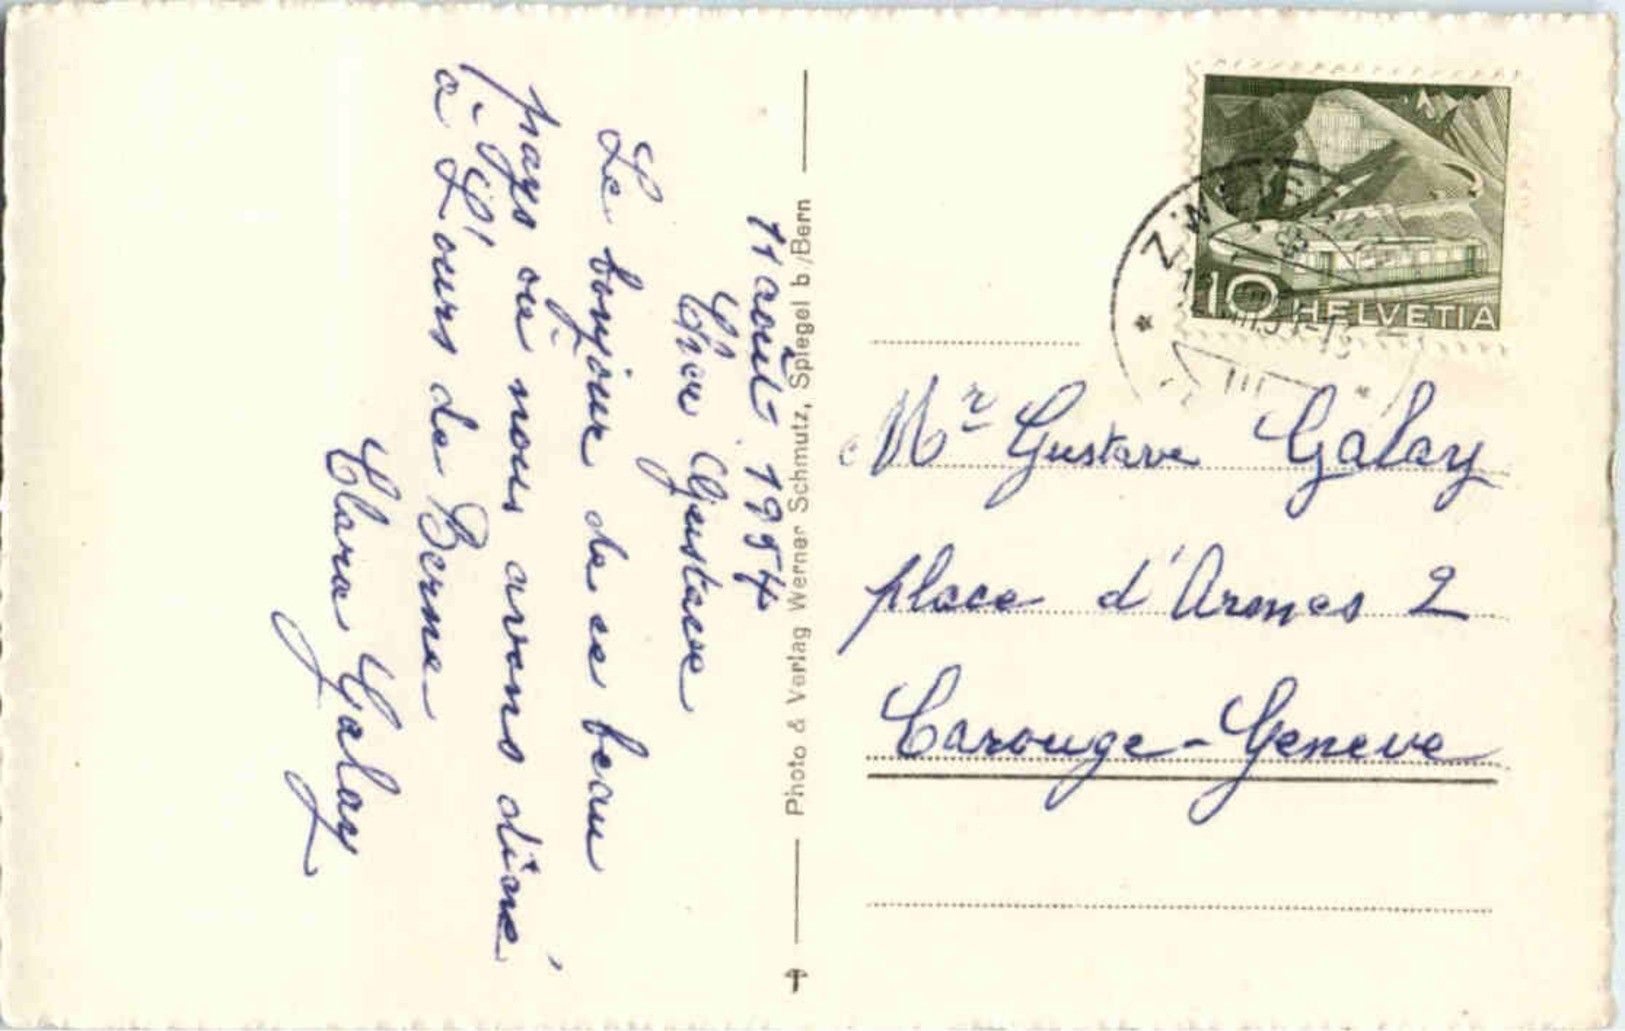 11 août 1954
Cher Gustave
Le bonjour de ce beau
pays où nous avons dîné
à L'Ours de Berne
Clara Galay
Photo & Verlag Werner Schmutz, Spiegel b/Bern
10 HELVETIA
Mr Gustave Galay
place d'Armes 2
Carouge-Geneve